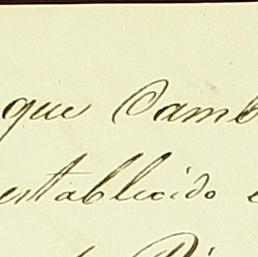 que Camb
establecido e